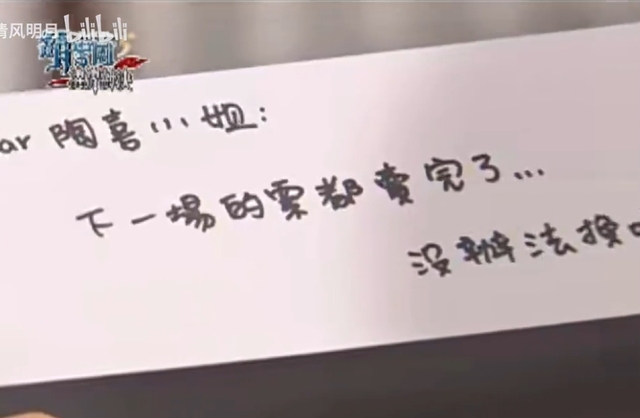 清风明月 bilibili
ar 陶喜小姐:
下一場的票都賣完了...
沒辦法換